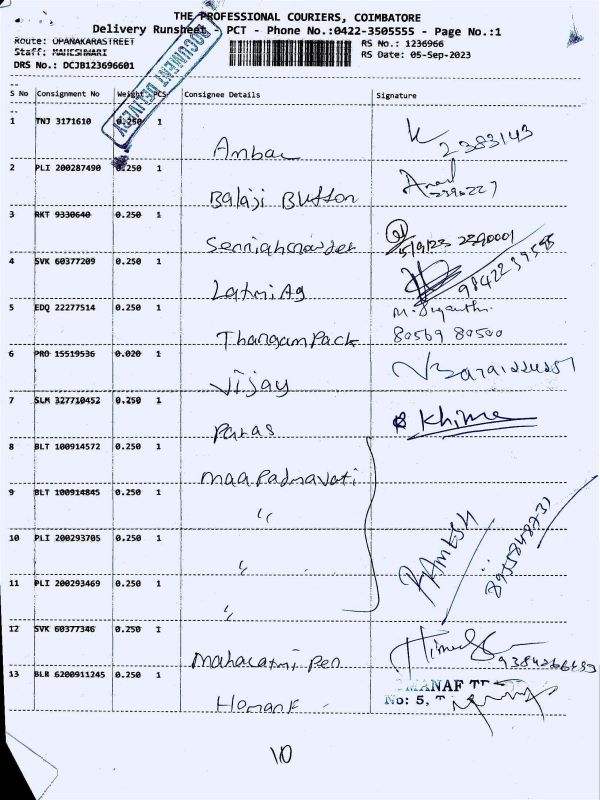 THE PROFESSIONAL COURIERS, COIMBATORE
Delivery Runsheet, PCT - Phone No.:0422-3505555 - Page No.:1
Route: OPANAKARASTREET
RS No.: 1236966
Staff: MAHESHWARI
RS Date: 05-Sep-2023
DRS No.: DCJB123696601
DOCUMENT DELIVERY
S No Consignment No Weight PCS Consignee Details Signature
1 TNJ 3171610 0.250 1 Ambae 2383143
2 PLI 200287490 0.250 1 Balaji Button 2390227
3 RKT 9330640 0.250 1 5/9/23 2390001
4 SVK 60377209 0.250 1 Laxmi Ag 9842239595
5 EDQ 22277514 0.250 1 Thangam Pack M.
80569 80500
6 PRO 15519536 0.020 1 Vijay
7 SLM 327710452 0.250 1 Paras Khima
8 BLT 100914572 0.250 1 Maa Padmavati
9 BLT 100914845 0.250 1 "
10 PLI 200293705 0.250 1 " RAMESH
11 PLI 200293469 0.250 1 "
12 SVK 60377346 0.250 1 Pen
13 BLR 6200911245 0.250 1
MANAF
No: 5,
10